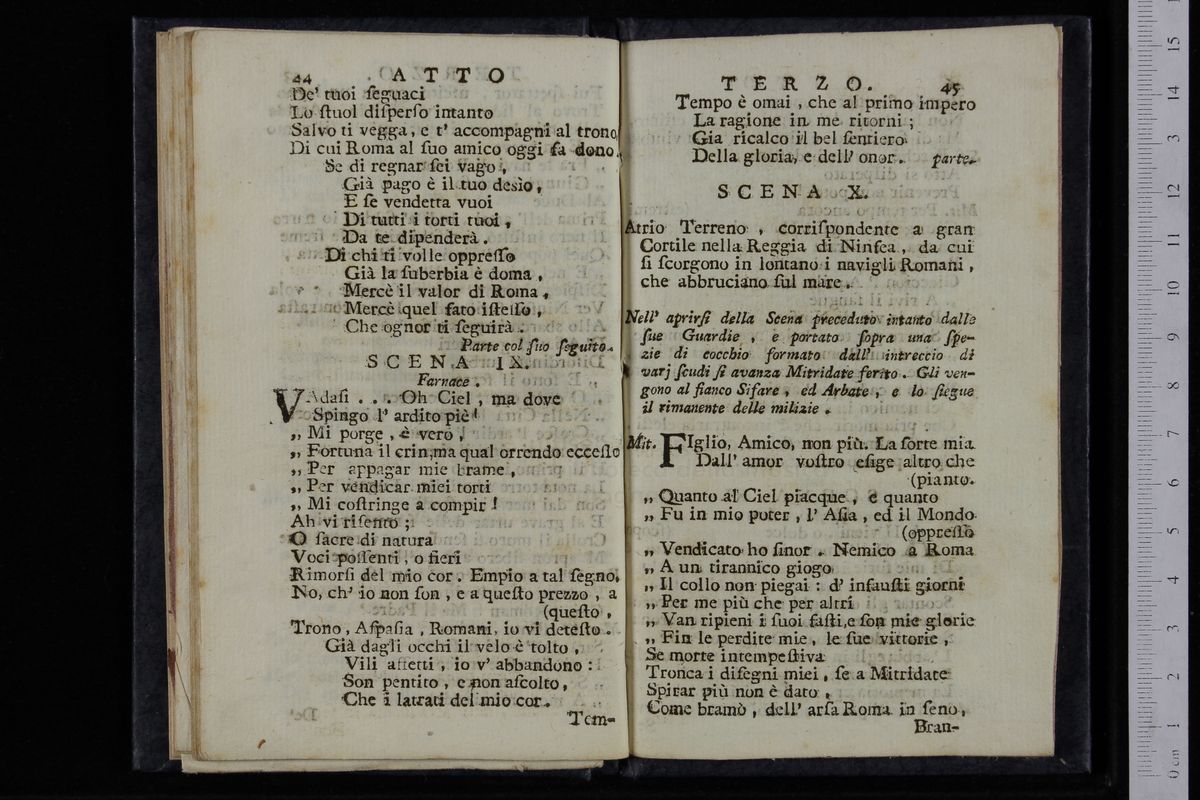 44 ATTO
De' tuoi ſeguaci
Lo ſtuol diſperſo intanto
Salvo ti vegga, e t' accompagni al trono
Di cui Roma al ſuo amico oggi fa dono.
Se di regnar ſei vago,
Già pago è il tuo desìo,
E ſe vendetta vuoi
Di tutti i torti tuoi,
Da te dipenderà.
Di chi ti volle oppreſſo
Già la ſuberbia è doma,
Mercè il valor di Roma,
Mercè quel fato iſteſſo,
Che ognor ti ſeguirà.
Parte col ſuo ſeguito.
SCENA IX.
Farnace.
VAdaſi... Oh Ciel, ma dove
Spingo l' ardito piè!
„ Mi porge, è vero,
„ Fortuna il crin, ma qual orrendo ecceſſo
„ Per appagar mie brame,
„ Per vendicar miei torti
„ Mi coſtringe a compir!
Ah vi riſento;
O ſacre di natura
Voci poſſenti, o fieri
Rimorſi del mio cor. Empio a tal ſegno,
No, ch' io non ſon, e a queſto prezzo, a
(queſto,
Trono, Aſpaſia, Romani, io vi deteſto.
Già dagli occhi il velo è tolto,
Vili affetti, io v' abbandono:
Son pentito, e non aſcolto,
Che i latrati del mio cor.
Tem-
TERZO. 45
Tempo è omai, che al primo impero
La ragione in me ritorni;
Gia ricalco il bel ſentiero
Della gloria, e dell' onor. parte.
SCENA X.
Atrio Terreno, corriſpondente a gran
Cortile nella Reggia di Ninfea, da cui
ſi ſcorgono in lontano i navigli Romani,
che abbruciano ſul mare.
Nell' aprirſi della Scena preceduto intanto dalle
ſue Guardie, e portato ſopra una ſpe-
zie di cocchio formato dall' intreccio di
varj ſcudi ſi avanza Mitridate ferito. Gli ven-
gono al fianco Sifare, ed Arbate, e lo ſiegue
il rimanente delle milizie.
Mit. FIglio, Amico, non più. La ſorte mia
Dall' amor voſtro eſige altro che
(pianto.
„ Quanto al Ciel piacque, e quanto
„ Fu in mio poter, l' Aſia, ed il Mondo
(oppreſſo
„ Vendicato ho ſinor. Nemico a Roma
„ A un tirannico giogo
„ Il collo non piegai: d' infauſti giorni
„ Per me più che per altri
„ Van ripieni i ſuoi faſti, e ſon mie glorie
„ Fin le perdite mie, le ſue vittorie,
Se morte intempeſtiva
Tronca i diſegni miei, ſe a Mitridate
Spirar più non è dato,
Come bramò, dell' arſa Roma in ſeno,
Bran-
0 cm 1 2 3 4 5 6 7 8 9 10 11 12 13 14 15